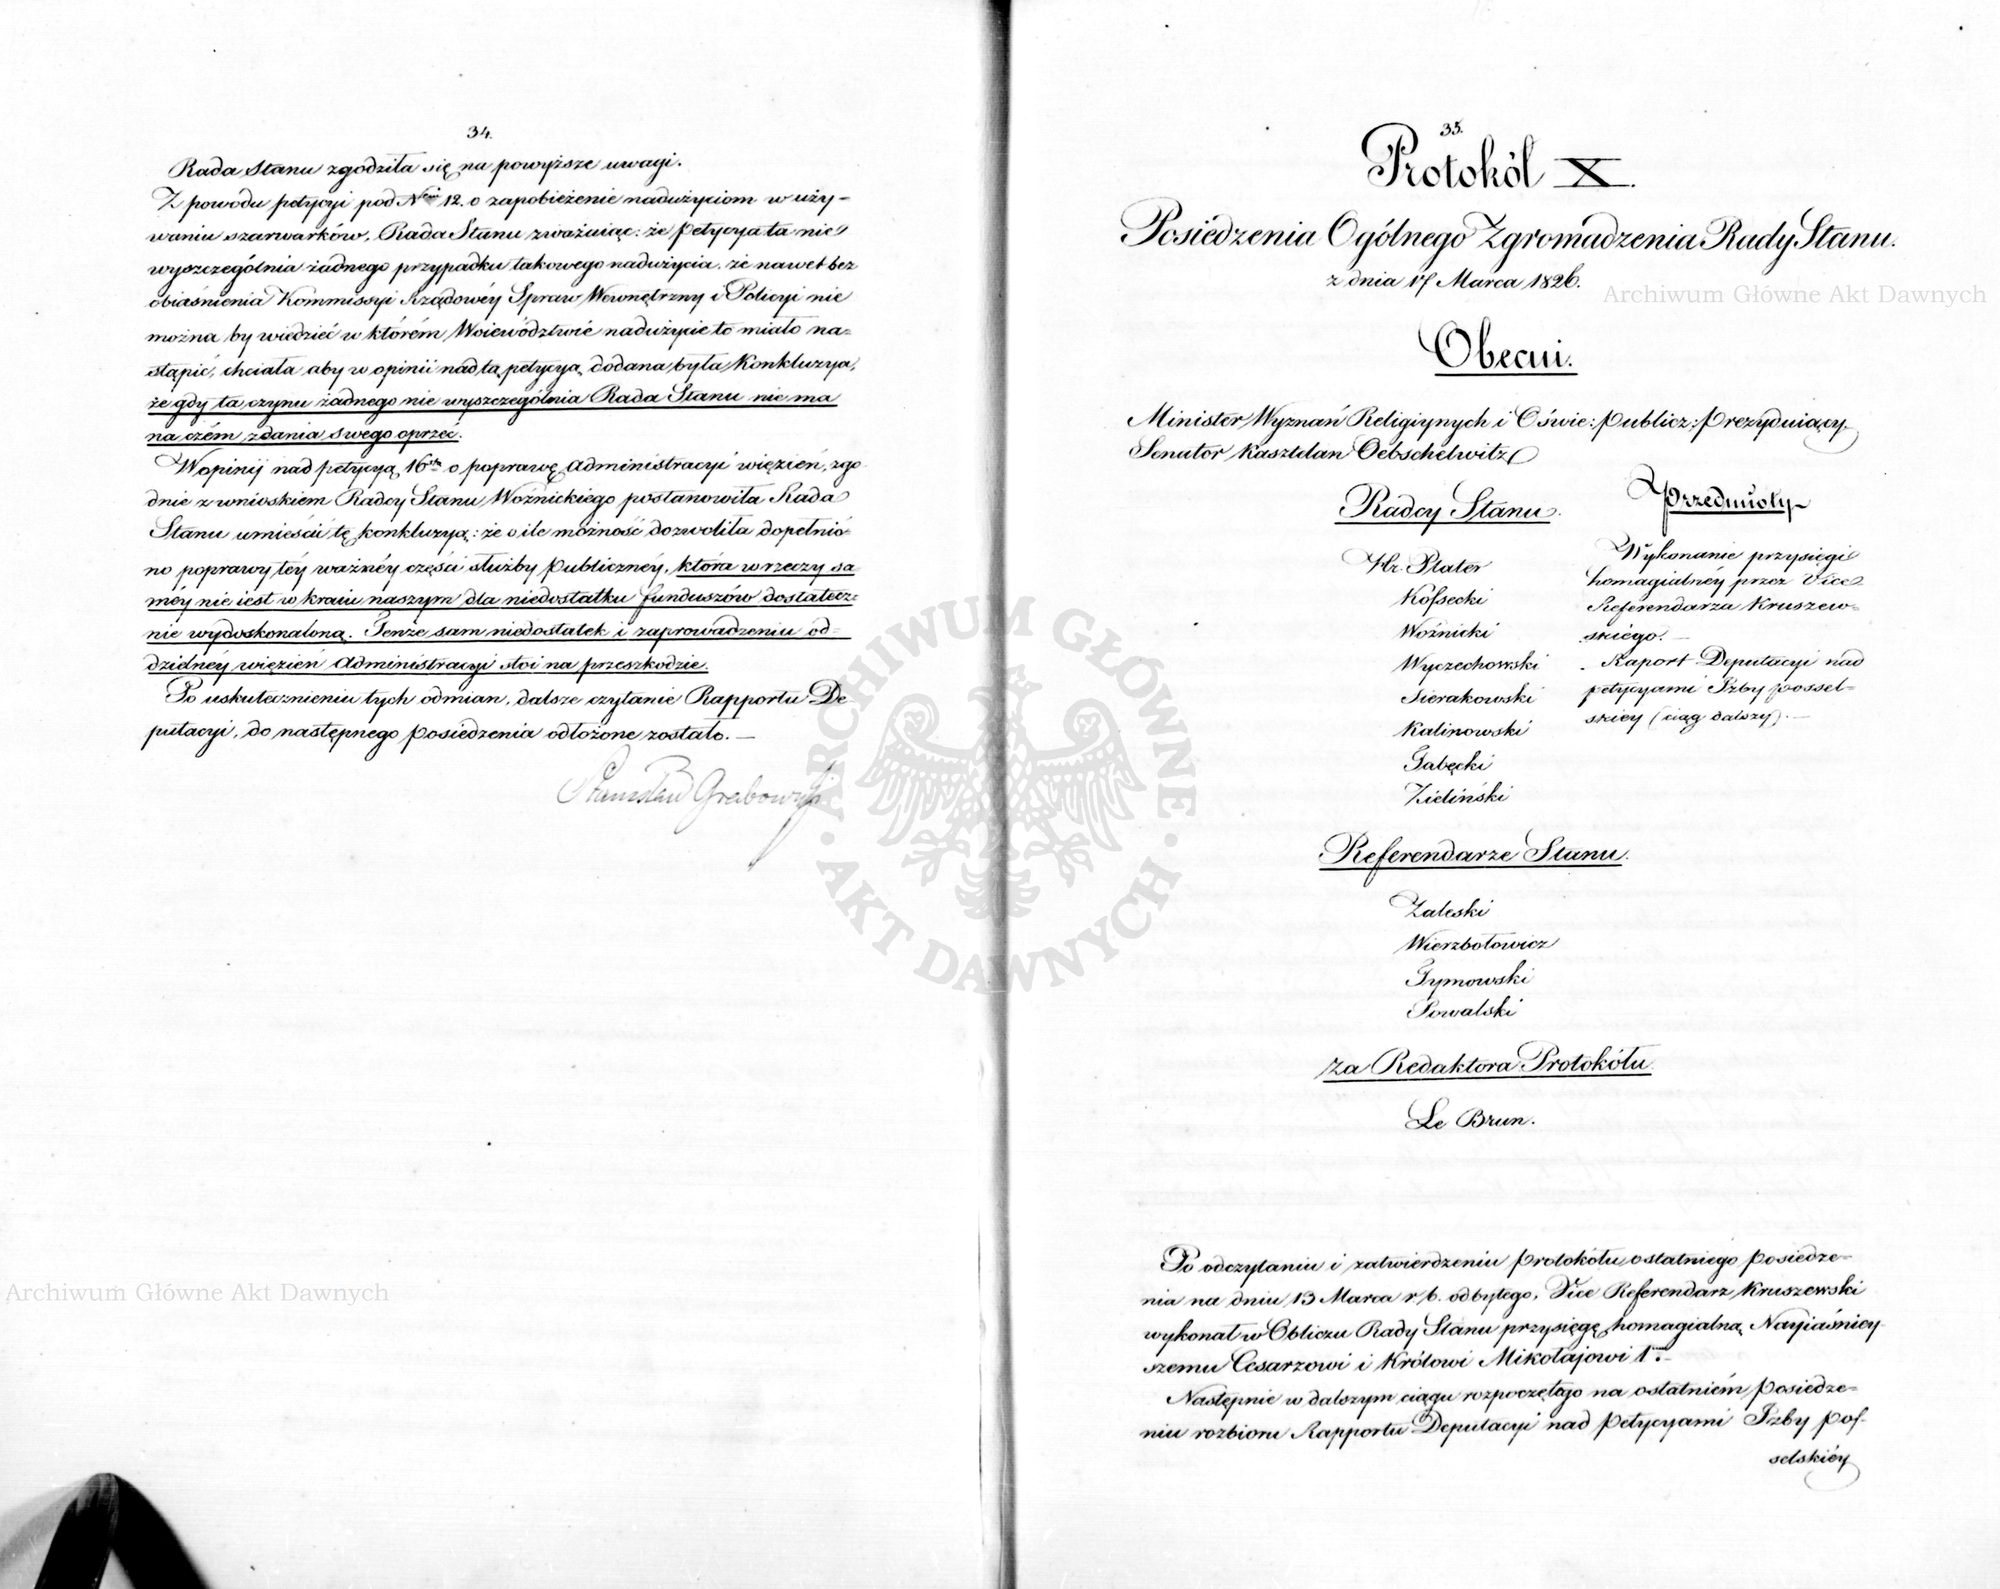 34.
Rada Stanu zgodziła się na powyższe uwagi.
Z powodu petycyi pod Nrm 12. o zapobieżenie nadużyciom w uży-
waniu szarwarków, Rada Stanu zważaiąc: że petycya ta nie
wyszczególnia żadnego przypadku takowego nadużycia, że nawet bez
obiaśnienia Kommissyi Rządowéy Spraw Wewnętrzny i Policyi nie
można by wiedzieć w którém Woiewództwie nadużycie to miało na-
stąpić, chciała aby w opinii nad tą petycyą, dodana była Konkluzya,
że gdy ta czynu żadnego nie wyszczególnia Rada Stanu nie ma
na czém zdania swego oprzeć.
W opinij nad petycyą 16tą o poprawę administracyi więzień, zgo-
dnie z wnioskiem Radcy Stanu Woźnickiego postanowiła Rada
Stanu umieścić tę konkluzyą: że o ile możność dozwoliła dopełnio-
no poprawy téy ważnéy części służby publicznéy, która w rzeczy sa-
méy nie iest w kraiu naszym dla niedostatku funduszów dostatecz-
nie wydoskonaloną. Tenże sam niedostatek i zaprowadzeniu od-
dzielnéy więzień Administracyi stoi na przeszkodzie.
Po uskutecznieniu tych odmian, dalsze czytanie Rapportu De
putacyi, do następnego posiedzenia odłożone zostało. —
Stanisław Grabowski
35.
Protokół X.
Posiedzenia Ogólnego Zgromadzenia Rady Stanu.
z dnia 17 Marca 1826.
Obecni.
Minister Wyznań Religiynych i Oświe: publicz: prezyduiący
Senator Kasztelan Oebschelwitz
Radcy Stanu.
Hr. Plater
Kofsecki
Woźnicki
Wyczechowski
Sierakowski
Kalinowski
Gabęcki
Zieliński
Przedmioty
Wykonanie przysięgi
homagialnéy przez Vice
Referendarza Kruszew-
skiégo. —
Raport Deputacyi nad
petycyami Izby possel-
skiey (ciąg dalszy). —
Referendarze Stanu.
Zaleski
Wierzbołowicz
Tymowski
Kowalski
za Redaktora Protokółu
Le Brun.
Po odczytaniu i zatwierdzeniu protokółu ostatniego posiedze-
nia na dniu 13 Marca r. b. odbytego, Vice Referendarz Kruszewski
wykonał w Obliczu Rady Stanu przysięgę homagialną Nayiaśniey-
szemu Cesarzowi i Królowi Mikołajowi 1mu. —
Następnie w dalszym ciągu rozpoczętego na ostatniém posiedze-
niu rozbioru Rapportu Deputacyi nad petycyami Izby pof-
selskiéy
Archiwum Główne Akt Dawnych
Archiwum Główne Akt Dawnych
ARCHIWUM GŁÓWNE · AKT DAWNYCH ·